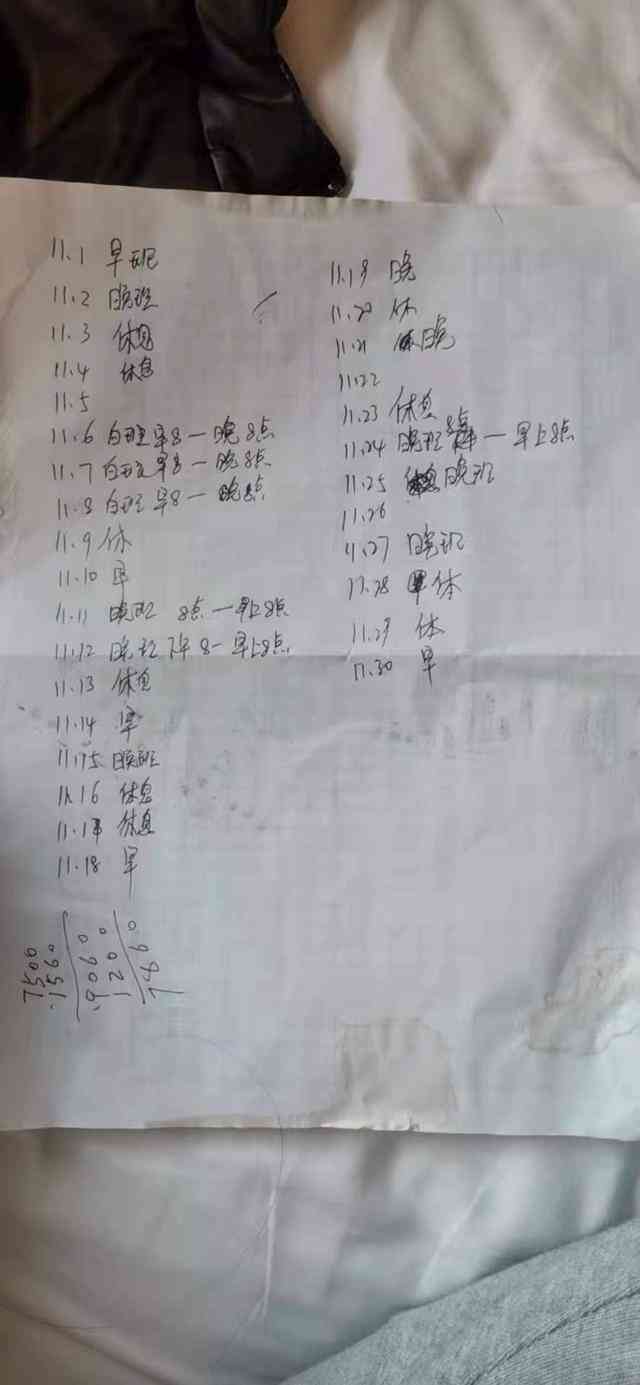 11.1 早班
11.2 晚班
11.3 休息
11.4 休息
11.5
11.6 白班早8一晚8点
11.7 白班早8一晚8点
11.8 白班早8一晚8点
11.9 休
11.10 早
11.11 晚班 8点一早上8点
11.12 晚班下午8一早上8点
11.13 休息
11.14 早
11.15 晚班
11.16 休息
11.17 休息
11.18 早
11.19 晚
11.20 休
11.21 晚
11.22
11.23 休息
11.24 晚班8点一早上8点
11.25 晚班
11.26
11.27 晚班
11.28 休
11.29 休
11.30 早
7500
1560
6060